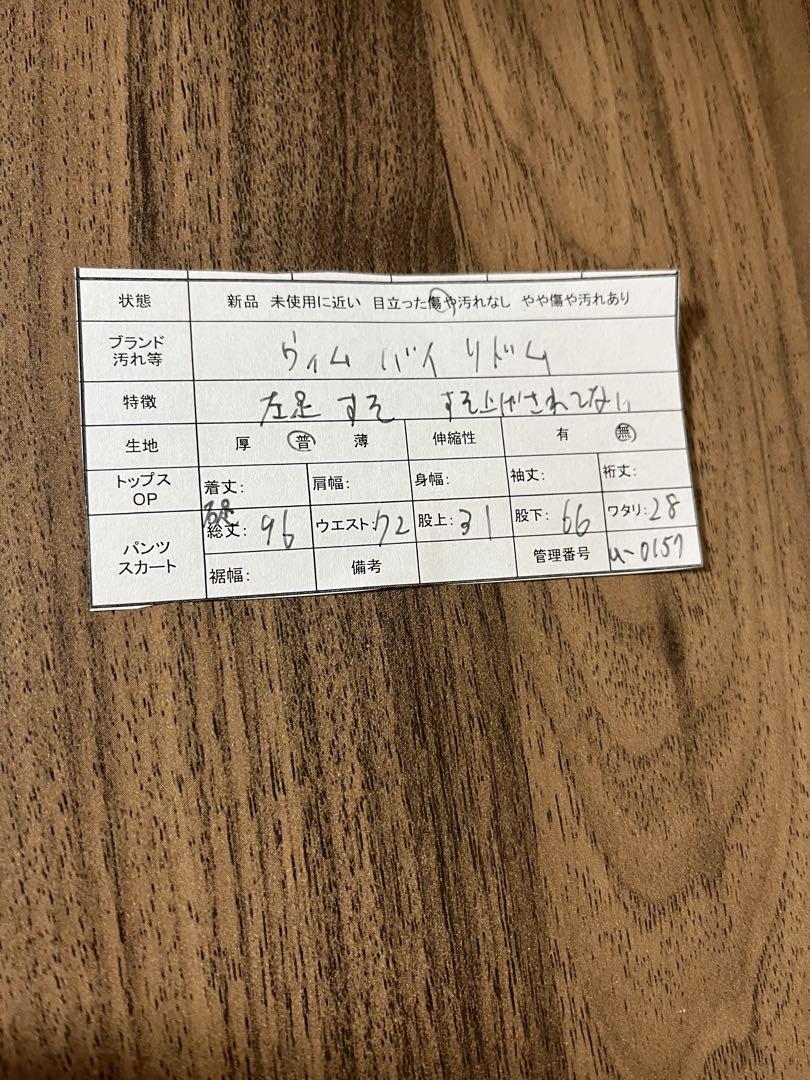 状態 新品 未使用に近い 目立った傷や汚れなし やや傷や汚れあり
ブランド
汚れ等 ヴィム バイ リドム
特徴 左足 すそ すそ上げされてない
生地 厚 普 薄 伸縮性 有 無
トップス
OP 着丈: 肩幅: 身幅: 袖丈: 裄丈:
パンツ
スカート 総丈: 96 ウエスト: 72 股上: 31 股下: 66 ワタリ: 28
裾幅: 備考 管理番号 u-0157